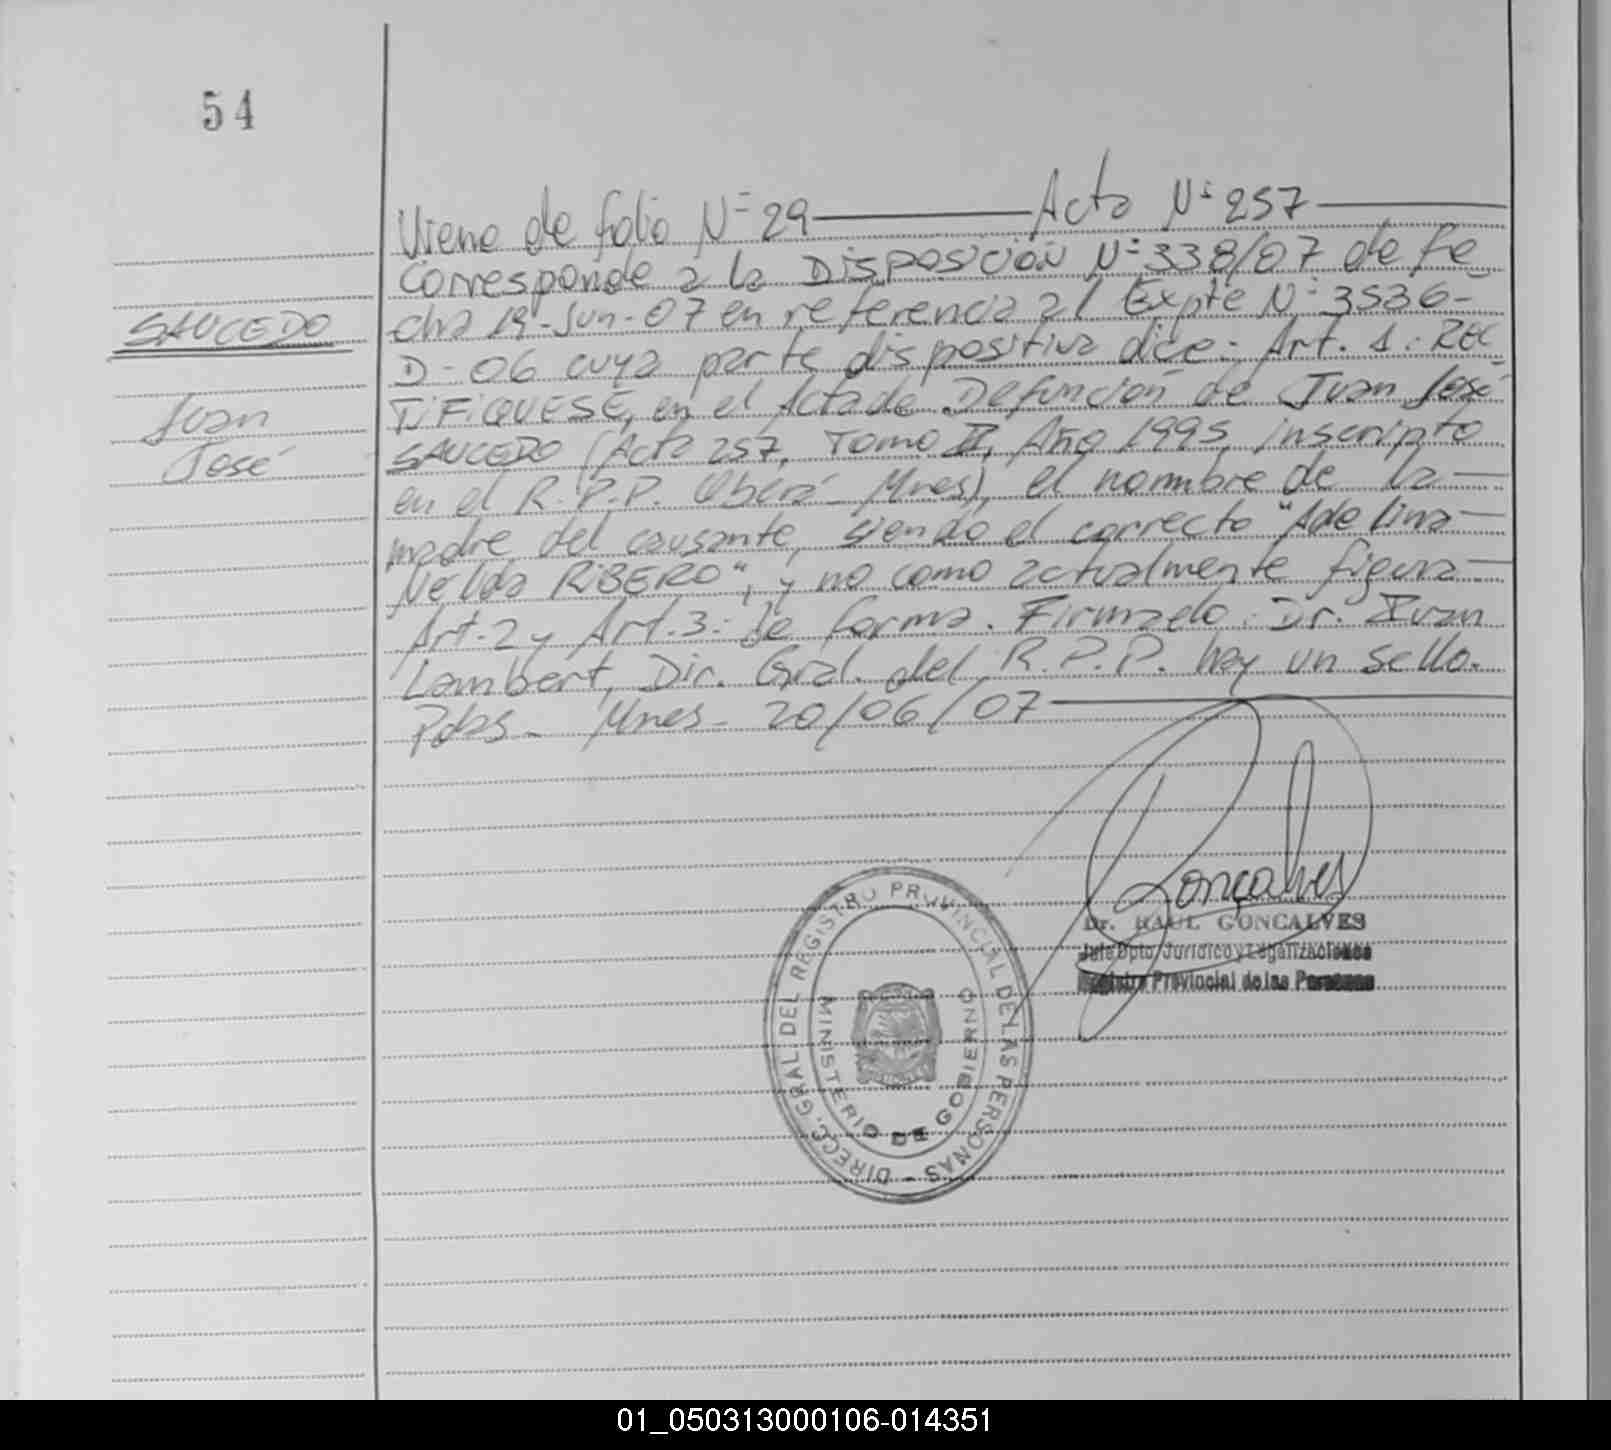 54
Viene de folio Nº 29 Acta Nº 257
Corresponde a la Disposición Nº 338/07 de fe
cha 19-Jun-07 en referencia al Expte Nº 3536-
D-06 cuya parte dispositiva dice: Art. 1: REC
TIFIQUESE, en el Acta de Defunción de Juan José
SAUCEDO (Acta 257, Tomo II, Año 1995, inscripto
en el R.P.P. Oberá Mnes), el nombre de la
madre del causante, siendo el correcto "Adelina
Nelida RIBERO", y no como actualmente figura
Art.2 y Art.3: de forma. Firmado: Dr. Ivan
Lambert, Dir. Gral. del R.P.P. hay un sello.
Pdas- Mnes- 20/06/07
SAUCEDO
Juan
José
Gonçalves
Dr. RAUL GONCALVES
Jefe Dpto. Jurídico y Legalizaciones
Registro Provincial de las Personas
DIRECC. GRAL. DEL REGISTRO PROVINCIAL DE LAS PERSONAS -
MINISTERIO DE GOBIERNO
01_050313000106-014351